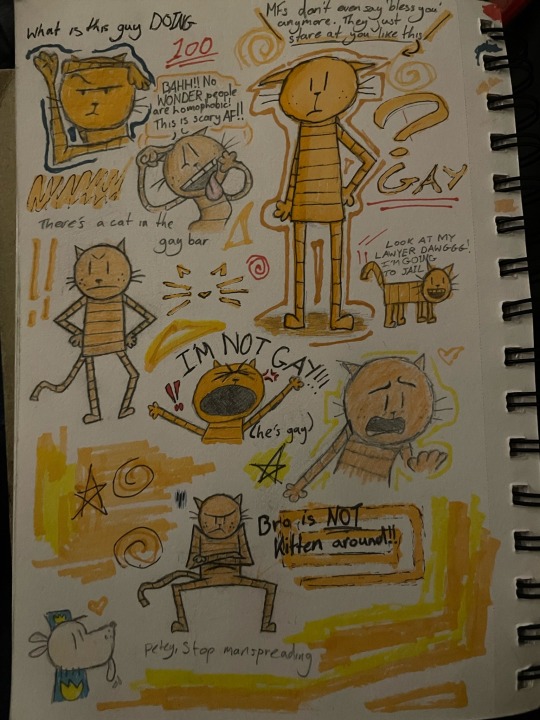 What is this guy DOING
100
MFs don't even say 'bless you'
anymore. They just
stare at you like this
BAHH!! No
WONDER people
are homophobic!
This is scary AF!!
?
GAY
There's a cat in the
gay bar
LOOK AT MY
LAWYER DAWGGG!
I'M GOING
TO JAIL
!!
I'M NOT GAY!!!
!!
(he's gay)
Bro is NOT
Kitten around!!
Petey, Stop manspreading